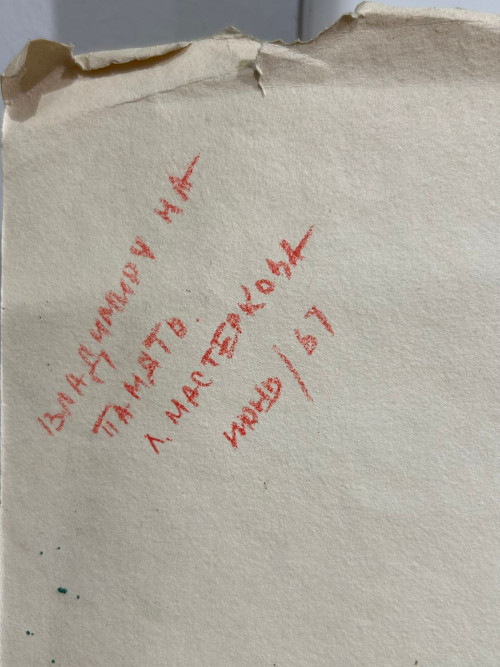 ВЛАДИМИРУ НА
ПАМЯТЬ.
Л. МАСТЕРКОВА
ИЮНЬ/67